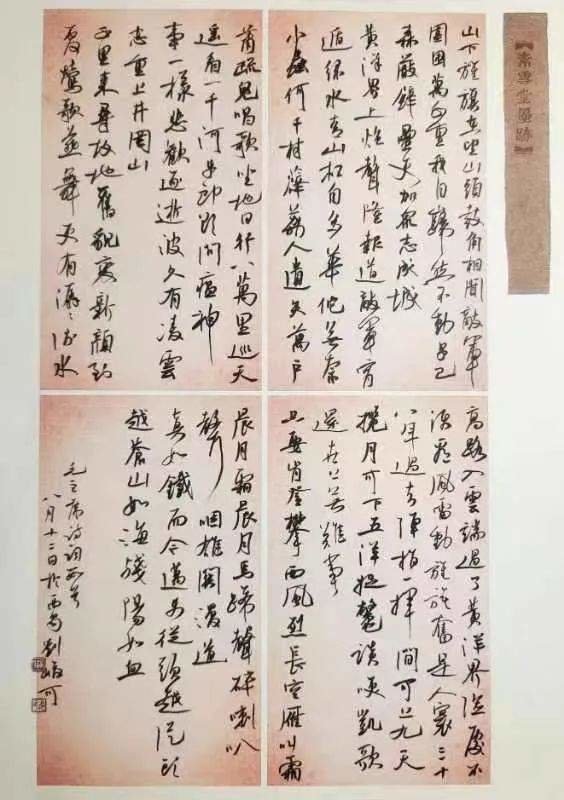 【素雪堂墨跡】
山下旌旗在望山頭鼓角相聞敵軍
圍困萬千重我自巋然不動早已
森嚴壁壘更加眾志成城
黃洋界上炮聲隆報道敵軍宵
遁綠水青山枉自多華佗無奈
小蟲何千村薜藶人遺矢萬戶
蕭疏鬼唱歌坐地日行八萬里巡天
遙看一千河牛郎欲問瘟神
事一樣悲歡逐逝波久有凌雲
志重上井岡山
千里來尋故地舊貌變新顏到
處鶯歌燕舞更有潺〻流水
高路入雲端過了黃洋界險處不
須看風雷動旌旗奮是人寰三十
八年過去彈指一揮間可上九天
攬月可下五洋捉鱉談笑凱歌
還世上無難事
只要肯登攀西風烈長空雁叫霜
晨月霜晨月馬蹄聲碎喇叭
聲咽雄關漫道
真如鐵而今邁步從頭越從頭
越蒼山如海殘陽如血
毛主席詩詞四首
八月十三日於西安劉